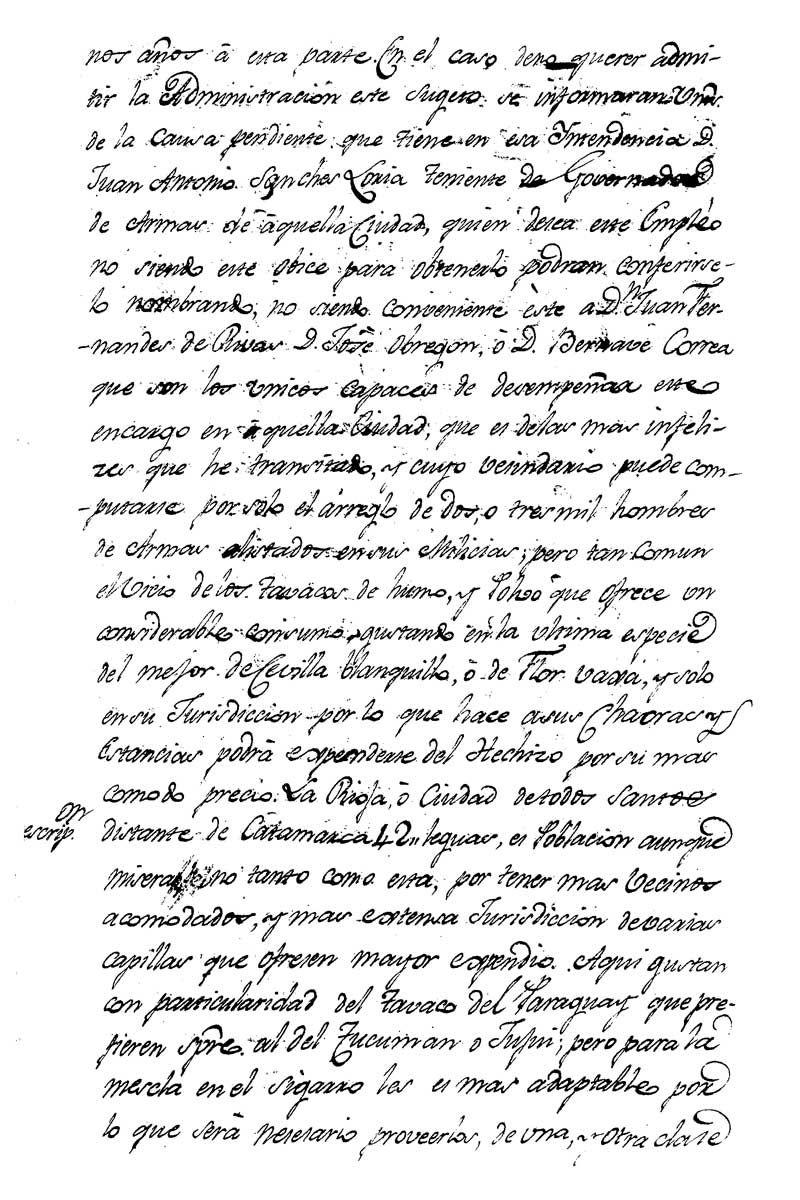 nos años â esta parte. En el caso deno querer admi-
tir la Administración este Sugeto. se informaran Vms.
de la Causa pendiente que tiene en esa Intendencia D.
Juan Antonio Sanches Loria teniente de Governador
de Armas de âquella Ciudad, quien desea este Empleo
no siendo este óbice para obtenerlo podran conferirse-
lo nombrando, no siendo conveniente êste a D.n Juan Fer-
-nandes de Rivas D. José Obregon, ô D. Bernavê Correa
que son los unicos capaces de desempeñaa este
encargo en âquella Ciudad, que es delas mas infeli-
zes que he transitado, y cuyo vecindario puede com-
-putarse por sôlo el árreglo de dos, o tres mil hombres
de Armas alistados ensus Milicias, pero tan comun
el Vicio de los tavacos de humo, y Polvo que ofrece un
considerable consumo, gustando en la ultima especie
del mejor de Cevilla blanquillo, ô de Flor vaxa, y solo
en su Jurisdiccion por lo que hace asus Chacras y
Estancias podrâ expenderse del Hechizo por su mas
comodo precio. La Rioja, ô Ciudad de todos Santos
on
escrip.
distante de Catamarca 42,, leguas, es Poblacion aunque
miserable no tanto como esta, por tener mas Vecinos
acomodados, y mas extensa Jurisdiccion de varias
capillas que ofresen mayor expendio. Aqui gustan
con particularidad del tavaco del Paraguay que pre-
fieren spre. al del Tucuman o Jujui; pero para la
mescla en el sigarro les es mas adaptable por
lo que serâ nesesario proveerlos, de una, y otra clase